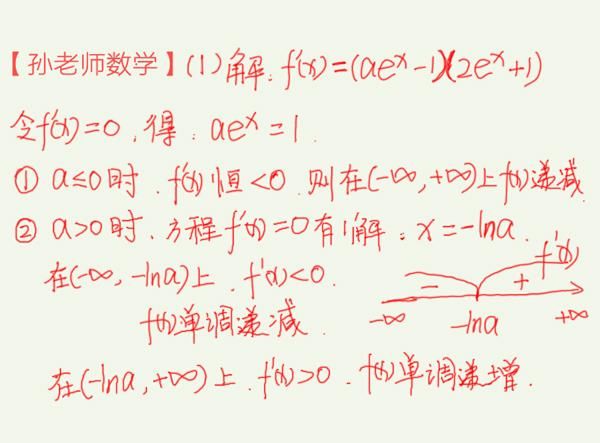 【孙老师数学】(1)解: f'(x)=(ae^x-1)(2e^x+1)
令f'(x)=0,得: ae^x=1.
① a≤0时.f'(x)恒<0.则在(-∞,+∞)上f(x)递减
② a>0时.方程f'(x)=0有1解:x=-lna.
在(-∞,-lna)上.f'(x)<0.
f'(x)
- +
f(x)单调递减.
-∞ -lna +∞
在(-lna,+∞)上.f'(x)>0.f(x)单调递增.